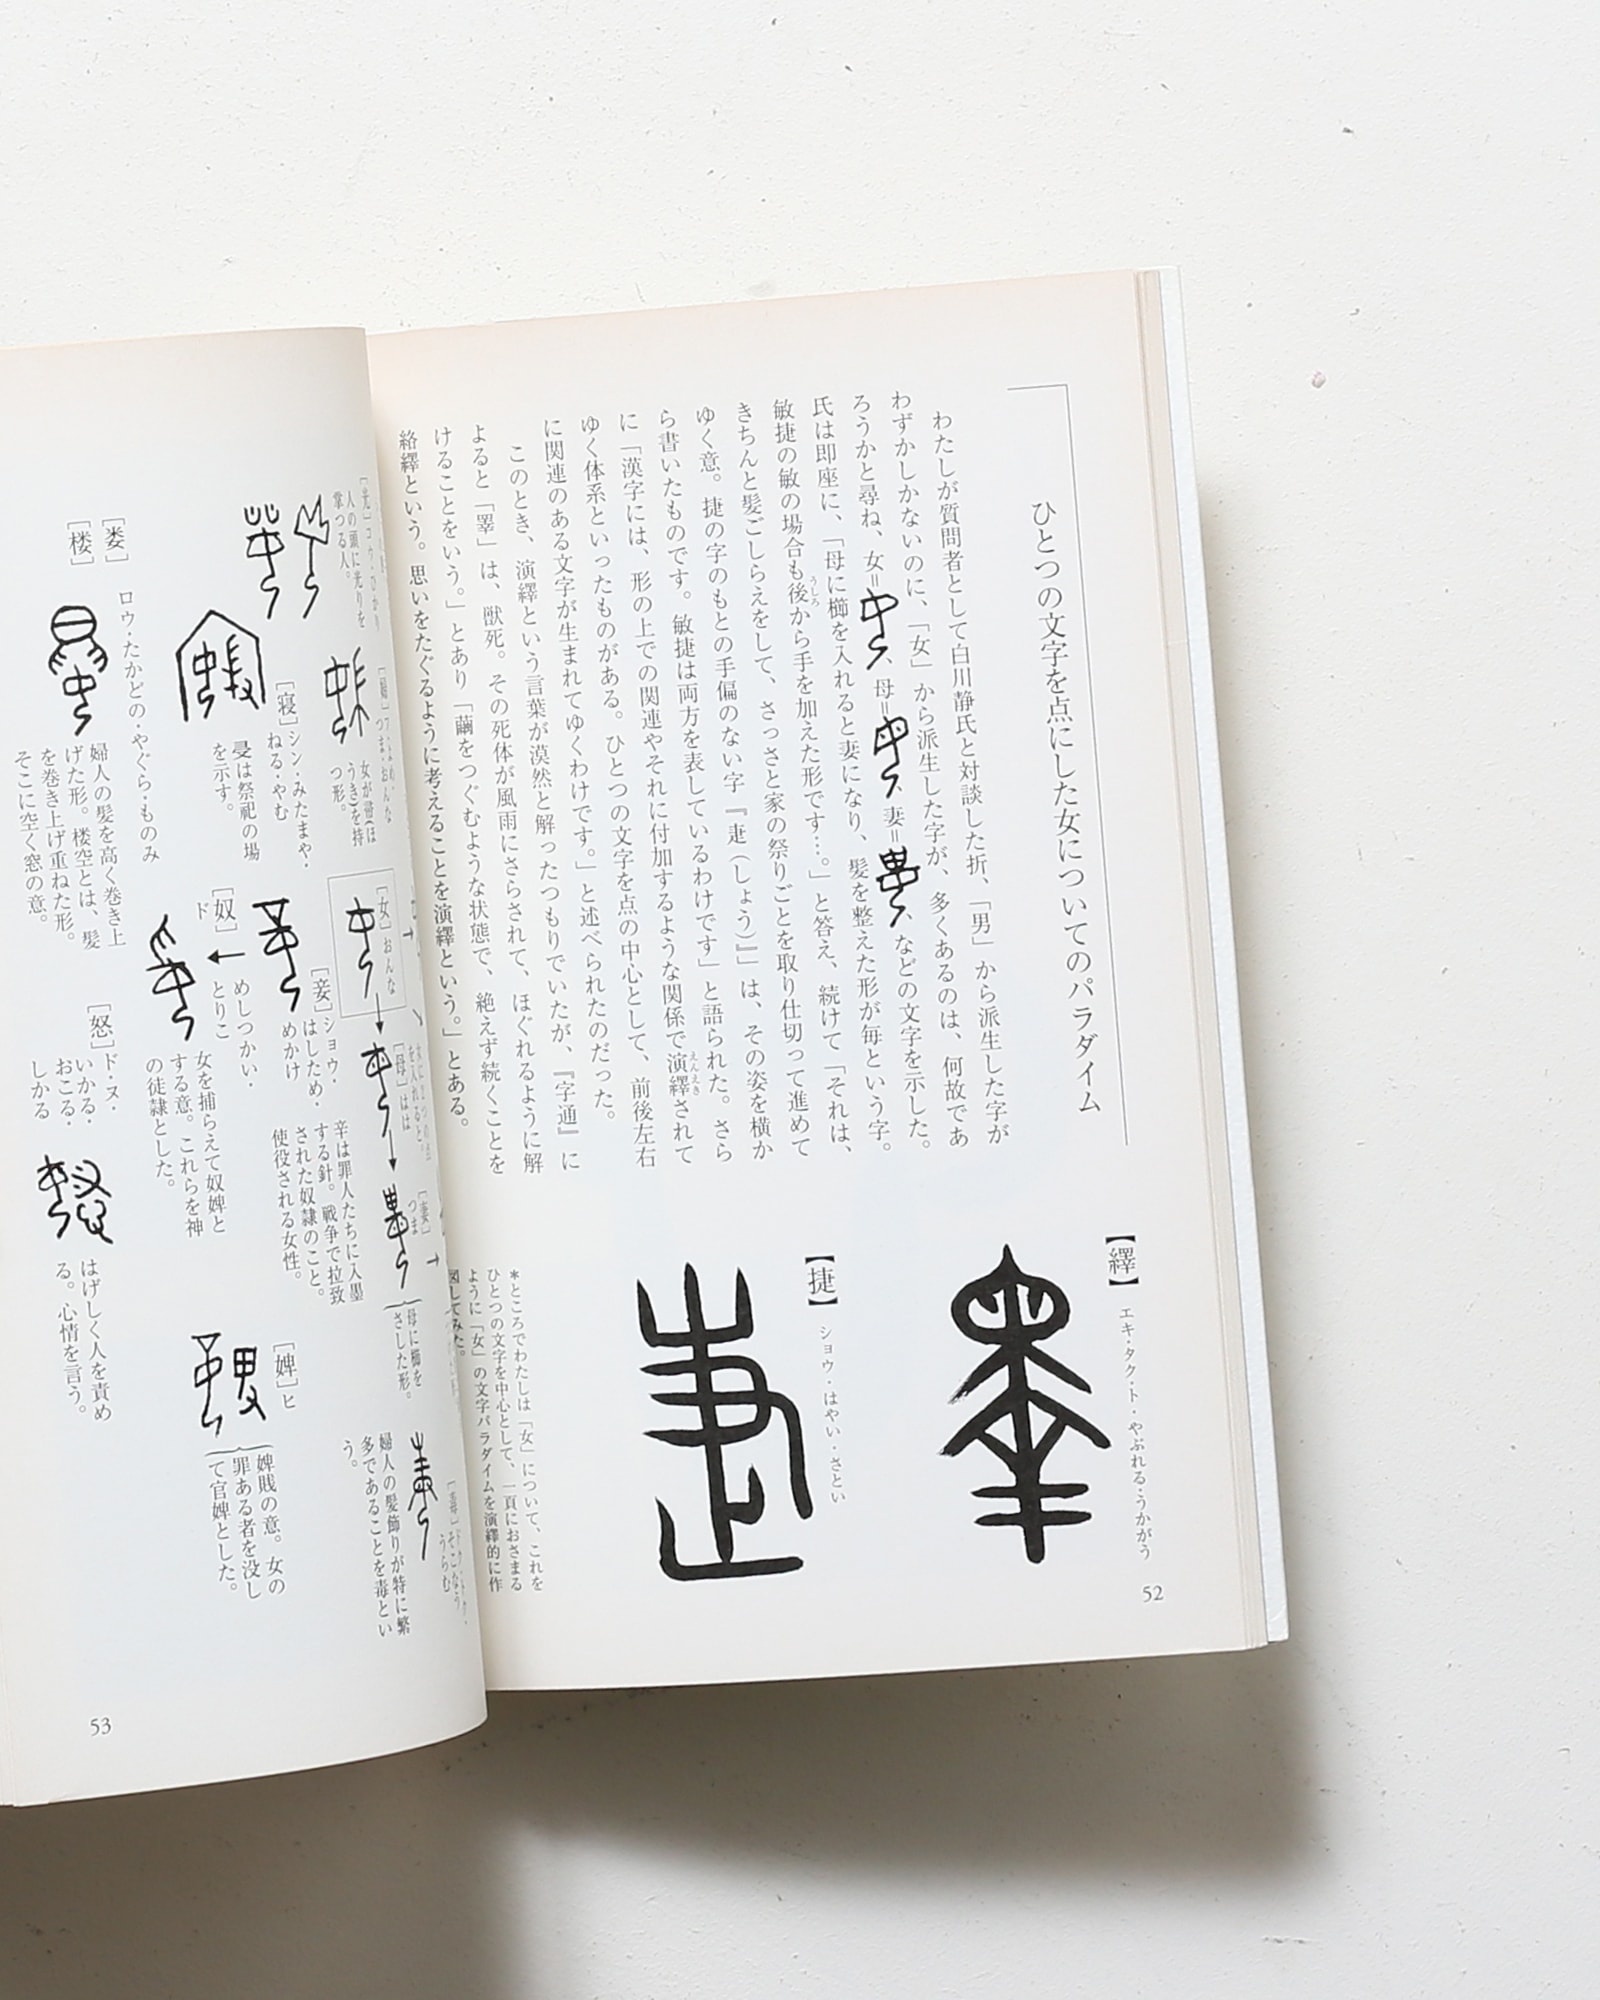 ひとつの文字を点にした女についてのパラダイム
わたしが質問者として白川静氏と対談した折、「男」から派生した字が
わずかしかないのに、「女」から派生した字が、多くあるのは、何故であ
ろうかと尋ね、女=、母=、妻=、などの文字を示した。
氏は即座に、「母に櫛を入れると妻になり、髪を整えた形が毎という字。
敏捷の敏の場合も後から手を加えた形です…。」と答え、続けて「それは、
きちんと髪ごしらえをして、さっさと家の祭りごとを取り仕切って進めて
ゆく意。捷の字のもとの手偏のない字『疌(しょう)』」は、その姿を横か
ら書いたものです。敏捷は両方を表しているわけです」と語られた。さら
に「漢字には、形の上での関連やそれに付加するような関係で演繹されて
ゆく体系といったものがある。ひとつの文字を点の中心として、前後左右
に関連のある文字が生まれてゆくわけです。」と述べられたのだった。
このとき、演繹という言葉が漠然と解ったつもりでいたが、『字通』に
よると「睪」は、獣死。その死体が風雨にさらされて、ほぐれるように解
けることをいう。」とあり「繭をつぐむような状態で、絶えず続くことを
絡繹という。思いをたぐるように考えることを演繹という。」とある。
【繹】 エキ・タク・ト・やぶれる・うかがう
【捷】 ショウ・はやい・さとい
*ところでわたしは「女」について、これを
ひとつの文字を中心として、一頁におさまる
ように「女」の文字パラダイムを演繹的に作
図してみた。
52
[光]コウ・ひかり
人の頭に光りを
掌つる人。
つま・おんな
女が帚(ほ
うき)を持
つ形。
[女]おんな
[母]はは
[妻]つま
母に櫛を
さした形。
うらむ
婦人の髪飾りが特に繁
多であることを毒とい
う。
[寝]シン・みたまや・
ねる・やむ
㝲は祭祀の場
を示す。
[妾]ショウ・
はしため・
めかけ
辛は罪人たちに入墨
する針。戦争で拉致
された奴隷のこと。
使役される女性。
[婢]ヒ
婢賎の意。女の
罪ある者を没し
て官婢とした。
[奴]
ド
めしつかい・
とりこ
女を捕らえて奴婢と
する意。これらを神
の徒隷とした。
[娄]
[楼]
ロウ・たかどの・やぐら・ものみ
婦人の髪を高く巻き上
げた形。楼空とは、髪
を巻き上げ重ねた形。
そこに空く窓の意。
[怒]ド・ヌ・
いかる・
おこる・
しかる
はげしく人を責め
る。心情を言う。
53